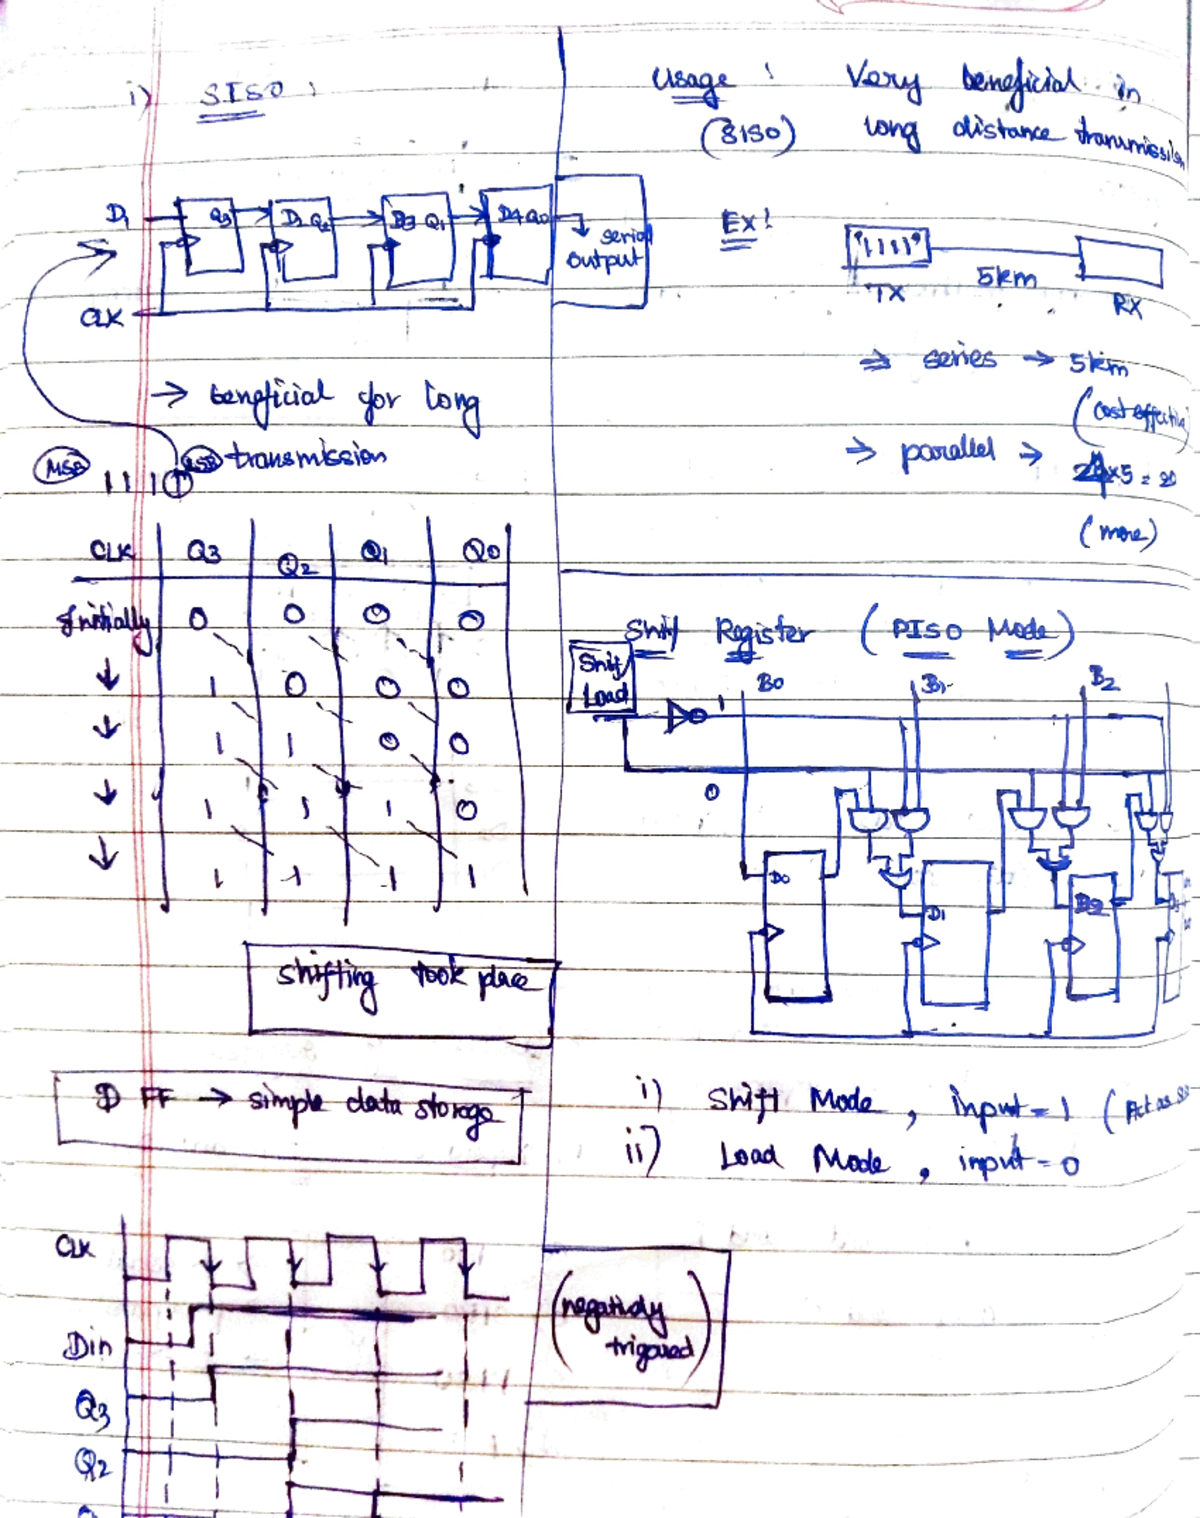 i) SISO :
D1 Q3 D2 Q2 D3 Q1 D4 Q0
serial
output
CLK
→ beneficial for long
transmission
MSB LSB
1 1 1 1
CLK Q3 Q2 Q1 Q0
Initially 0 0 0 0
↓ 1 0 0 0
↓ 1 1 0 0
↓ 1 1 1 0
↓ 1 1 1 1
shifting took place
D FF → simple data storage
CLK
Din
Q3
Q2
(negatively
trigared)
Usage : Very beneficial in
(SISO) long distance transmission
Ex:
1111
TX 5km RX
⇒ series → 5km
(cost effective
⇒ parallel →
4x5 = 20
(more)
Shift Register (PISO Mode)
Shift/
Load
B0 B1 B2
1
0
D0 D1 D2
i) Shift Mode, input = 1 (Act as
ii) Load Mode, input = 0